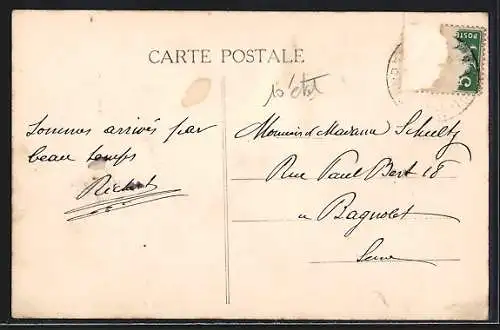 CARTE POSTALE
POSTE
Sommes arrivés par
beau temps
Richert
Monsieur et Madame Schultz
Rue Paul Bert 18
a Bagnolet
Seine